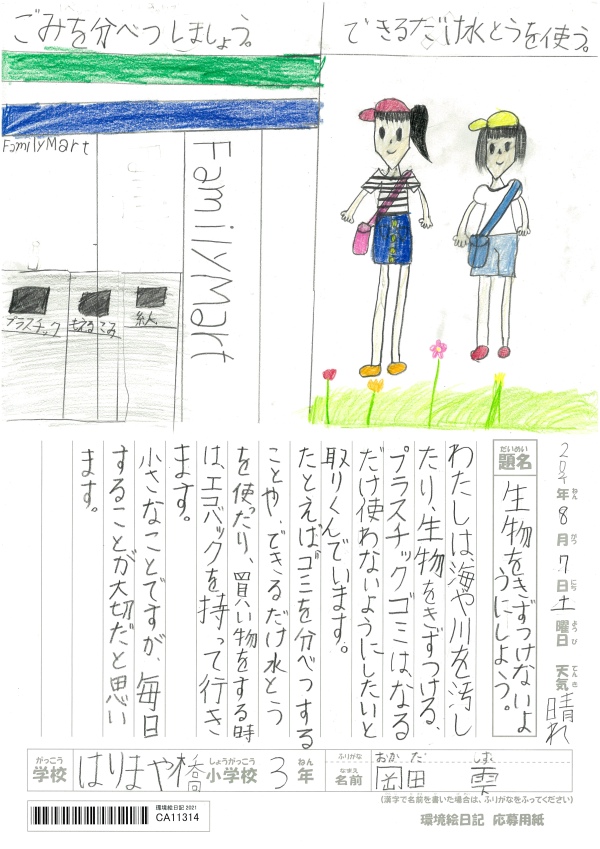 ごみを分べつしましょう。
できるだけ水とうを使う。
FamilyMart
FamilyMart
プラスチック
もえるごみ
紙
2021年8月7日土曜日 天気 晴れ
ねん がつ にち ようび てんき
だいめい
題名
生物をきずつけないよ
うにしよう。
わたしは海や川を汚し
たり、生物をきずつける、
プラスチックゴミは、なる
だけ使わないようにしたいと
取りくんでいます。
たとえばゴミを分べつする
ことや、できるだけ水とう
を使ったり、買い物をする時
は、エコバックを持って行き
ます。
小さなことですが、毎日
することが大切だと思い
ます。
がっこう しょうがっこう ねん
学校 はりまや橋小学校 3年
ふりがな おかだ しずく
なまえ
名前 岡田 雫
(漢字で名前を書いた場合は、ふりがなをふってください)
環境絵日記 2021
CA11314
環境絵日記 応募用紙